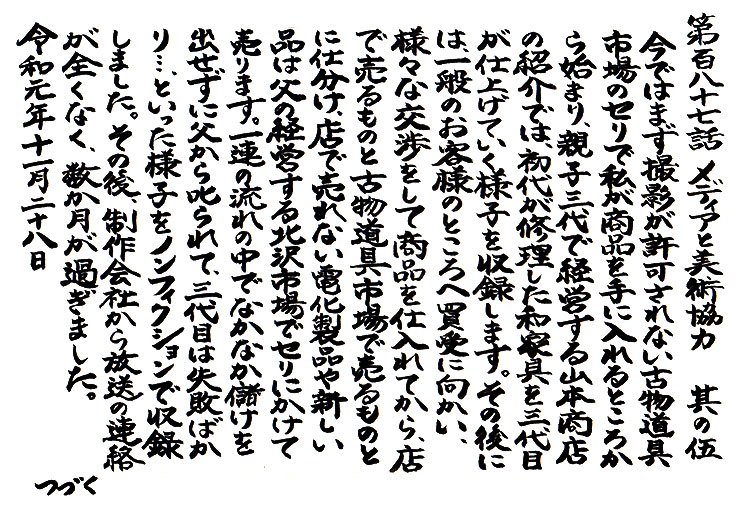 第百八十七話 メディアと美術協力 其の伍
今ではまず撮影が許可されない古物道具
市場のセリで私が商品を手に入れるところか
ら始まり、親子三代で経営する山本商店
の紹介では、初代が修理した和家具を三代目
が仕上げていく様子を収録します。その後に
は、一般のお客様のところへ買受に向かい、
様々な交渉をして商品を仕入れてから、店
で売るものと古物道具市場で売るものと
に仕分け、店で売れない電化製品や新しい
品は父の経営する北沢市場でセリにかけて
売ります。一連の流れの中でなかなか儲けを
出せずに父から叱られて、三代目は失敗ばか
り…、といった様子をノンフィクションで収録
しました。その後、制作会社から放送の連絡
が全くなく、数か月が過ぎました。
令和元年十一月二十八日
つづく